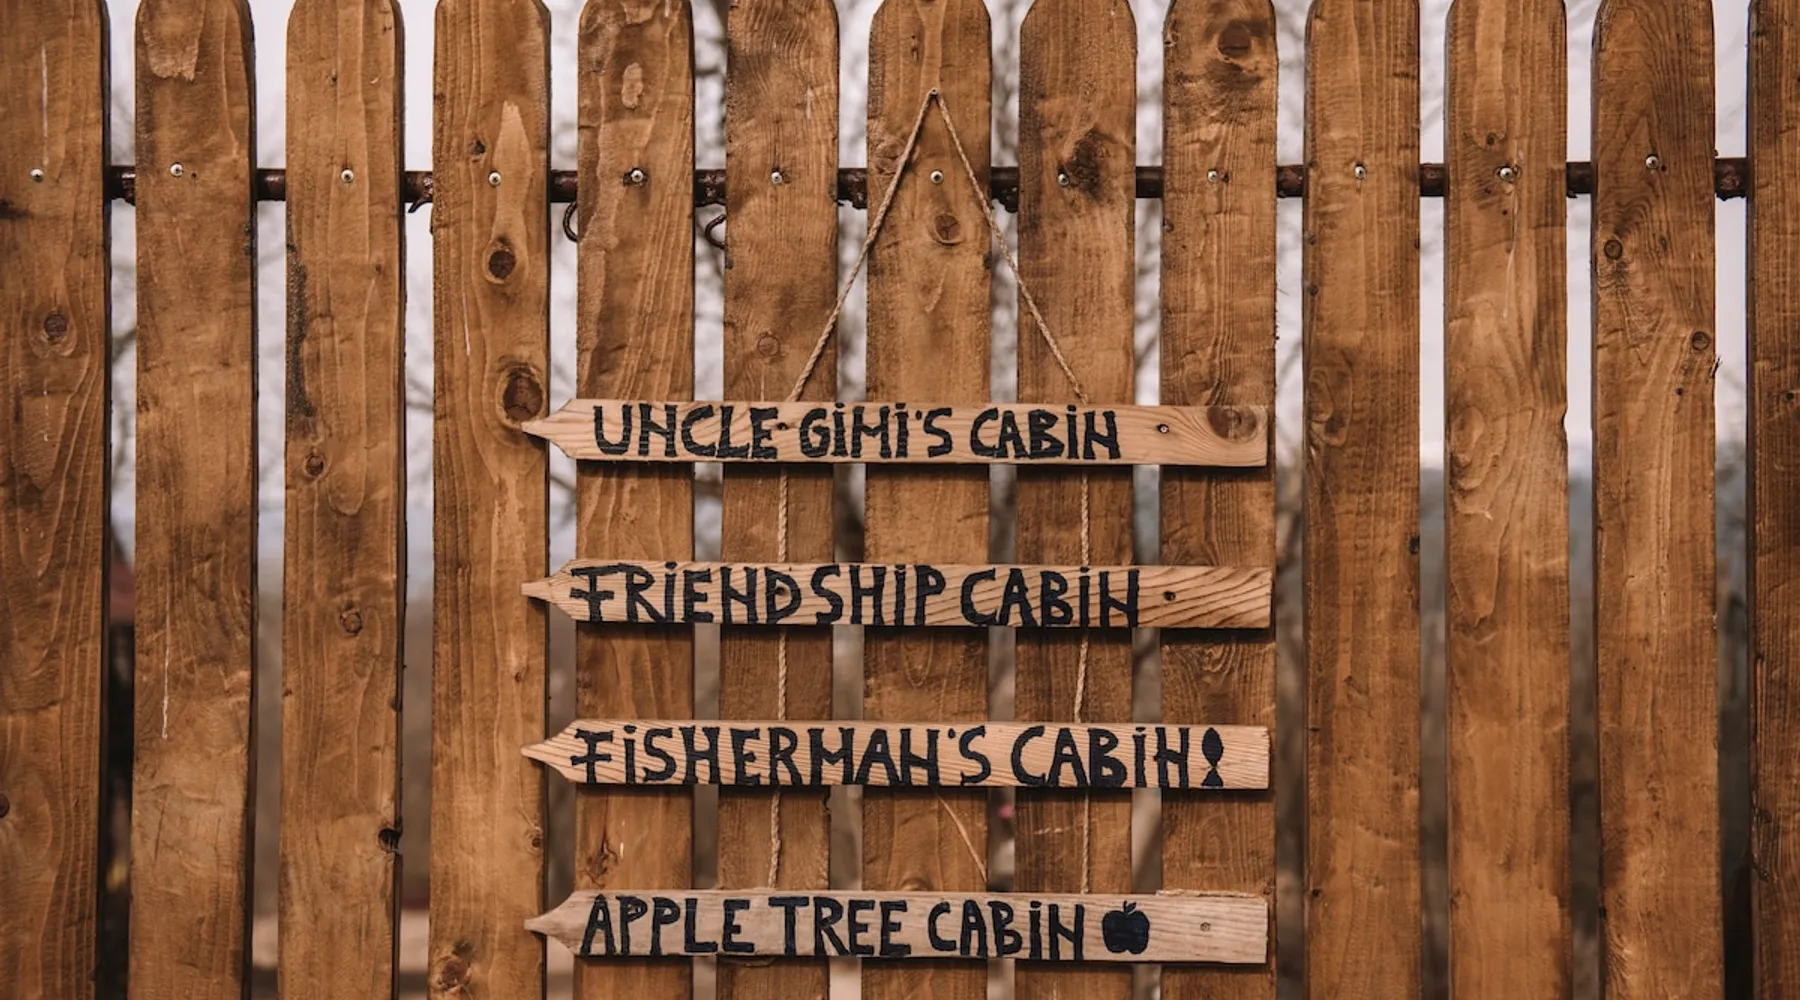 UNCLE GiMi'S CABiN
FRiENDSHiP CABiN
FiSHERMAN'S CABiN
APPLE TREE CABiN